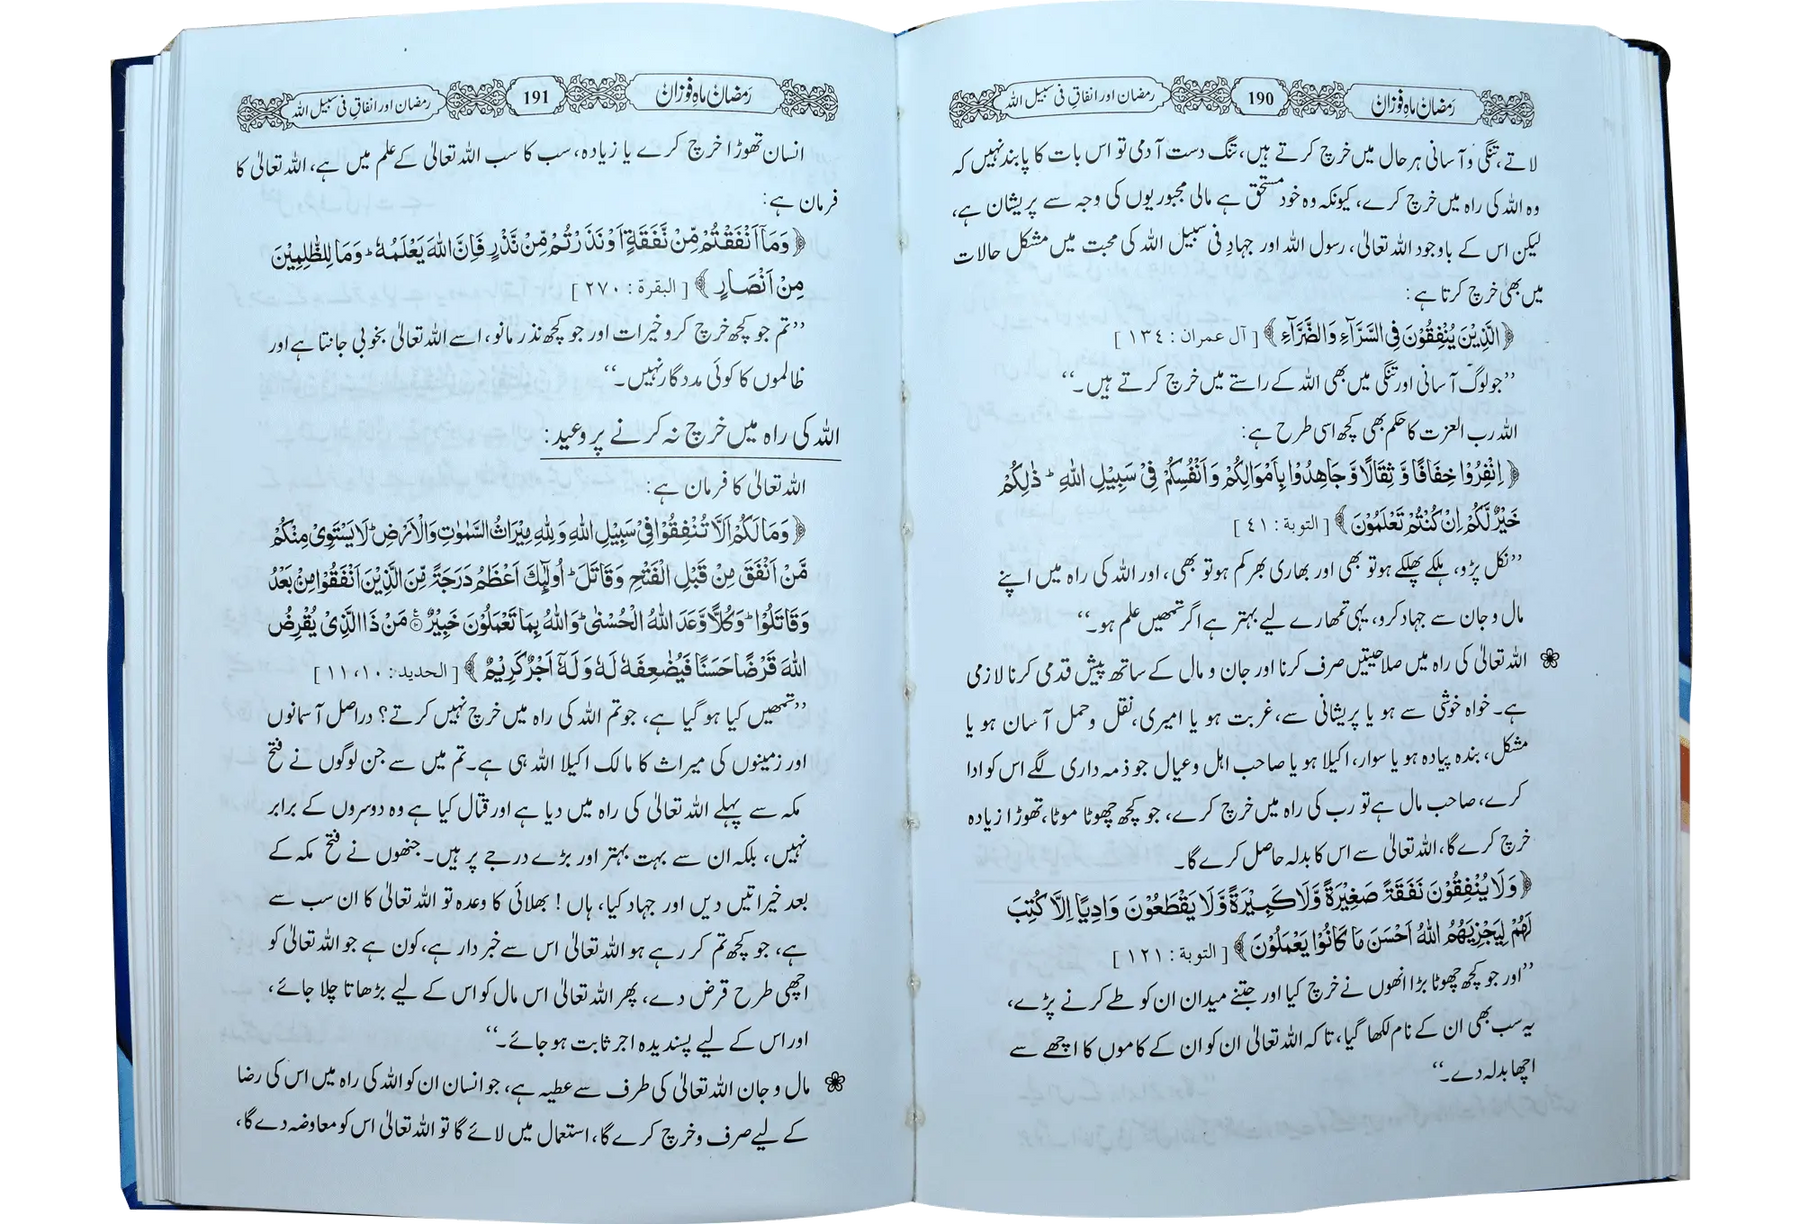 رمضان ماہِ فوزان 190 رمضان اور انفاقِ فی سبیل اللہ
لاتے، تنگی و آسانی ہر حال میں خرچ کرتے ہیں، تنگ دست آدمی تو اس بات کا پابند نہیں کہ
وہ اللہ کی راہ میں خرچ کرے، کیونکہ وہ خود مستحق ہے مالی مجبوریوں کی وجہ سے پریشان ہے،
لیکن اس کے باوجود اللہ تعالیٰ، رسول اللہ اور جہادِ فی سبیل اللہ کی محبت میں مشکل حالات
میں بھی خرچ کرتا ہے:
﴿ الَّذِيْنَ يُنْفِقُوْنَ فِي السَّرَّآءِ وَالضَّرَّآءِ ﴾ [ آل عمران : ١٣٤ ]
’’جو لوگ آسانی اور تنگی میں بھی اللہ کے راستے میں خرچ کرتے ہیں۔‘‘
اللہ رب العزت کا حکم بھی کچھ اسی طرح ہے:
﴿ اِنْفِرُوْا خِفَافًا وَّ ثِقَالًا وَّ جَاهِدُوْا بِاَمْوَالِكُمْ وَ اَنْفُسِكُمْ فِيْ سَبِيْلِ اللّٰهِ ؕ ذٰلِكُمْ
خَيْرٌ لَّكُمْ اِنْ كُنْتُمْ تَعْلَمُوْنَ ﴾ [ التوبة : ٤١ ]
’’نکل پڑو، ہلکے پھلکے ہو تو بھی اور بھاری بھر کم ہو تو بھی، اور اللہ کی راہ میں اپنے
مال و جان سے جہاد کرو، یہی تمھارے لیے بہتر ہے اگر تمھیں علم ہو۔‘‘
❀ اللہ تعالیٰ کی راہ میں صلاحیتیں صرف کرنا اور جان و مال کے ساتھ پیش قدمی کرنا لازمی
ہے۔ خواہ خوشی سے ہو یا پریشانی سے، غربت ہو یا امیری، نقل وحمل آسان ہو یا
مشکل، بندہ پیادہ ہو یا سوار، اکیلا ہو یا صاحب اہل و عیال جو ذمہ داری لگے اس کو ادا
کرے، صاحب مال ہے تو رب کی راہ میں خرچ کرے، جو کچھ چھوٹا موٹا، تھوڑا زیادہ
خرچ کرے گا، اللہ تعالیٰ سے اس کا بدلہ حاصل کرے گا۔
﴿ وَلَا يُنْفِقُوْنَ نَفَقَةً صَغِيْرَةً وَّلَا كَبِيْرَةً وَّلَا يَقْطَعُوْنَ وَادِيًا اِلَّا كُتِبَ
لَهُمْ لِيَجْزِيَهُمُ اللّٰهُ اَحْسَنَ مَا كَانُوْا يَعْمَلُوْنَ ﴾ [ التوبة : ١٢١ ]
’’اور جو کچھ چھوٹا بڑا انھوں نے خرچ کیا اور جتنے میدان ان کو طے کرنے پڑے،
یہ سب بھی ان کے نام لکھا گیا، تاکہ اللہ تعالیٰ ان کو ان کے کاموں کا اچھے سے
اچھا بدلہ دے۔‘‘
رمضان ماہِ فوزان 191 رمضان اور انفاقِ فی سبیل اللہ
انسان تھوڑا خرچ کرے یا زیادہ، سب کا سب اللہ تعالیٰ کے علم میں ہے، اللہ تعالیٰ کا
فرمان ہے:
﴿ وَمَآ اَنْفَقْتُمْ مِّنْ نَّفَقَةٍ اَوْ نَذَرْتُمْ مِّنْ نَّذْرٍ فَاِنَّ اللّٰهَ يَعْلَمُهٗ ؕ وَمَا لِلظّٰلِمِيْنَ
مِنْ اَنْصَارٍ ﴾ [ البقرة : ٢٧٠ ]
’’تم جو کچھ خرچ کرو خیرات اور جو کچھ نذر مانو، اسے اللہ تعالیٰ بخوبی جانتا ہے اور
ظالموں کا کوئی مددگار نہیں۔‘‘
اللہ کی راہ میں خرچ نہ کرنے پر وعید:
اللہ تعالیٰ کا فرمان ہے:
﴿ وَمَا لَكُمْ اَلَّا تُنْفِقُوْا فِيْ سَبِيْلِ اللّٰهِ وَلِلّٰهِ مِيْرَاثُ السَّمٰوٰتِ وَالْاَرْضِ ؕ لَا يَسْتَوِيْ مِنْكُمْ
مَّنْ اَنْفَقَ مِنْ قَبْلِ الْفَتْحِ وَقَاتَلَ ؕ اُولٰٓئِكَ اَعْظَمُ دَرَجَةً مِّنَ الَّذِيْنَ اَنْفَقُوْا مِنْۢ بَعْدُ
وَقَاتَلُوْا ؕ وَكُلًّا وَّعَدَ اللّٰهُ الْحُسْنٰى ؕ وَاللّٰهُ بِمَا تَعْمَلُوْنَ خَبِيْرٌ ۞ مَنْ ذَا الَّذِيْ يُقْرِضُ
اللّٰهَ قَرْضًا حَسَنًا فَيُضٰعِفَهٗ لَهٗ وَلَهٗٓ اَجْرٌ كَرِيْمٌ ﴾ [ الحديد: ١٠، ١١ ]
’’تمھیں کیا ہو گیا ہے، جو تم اللہ کی راہ میں خرچ نہیں کرتے؟ دراصل آسمانوں
اور زمینوں کی میراث کا مالک اکیلا اللہ ہی ہے۔ تم میں سے جن لوگوں نے فتح
مکہ سے پہلے اللہ تعالیٰ کی راہ میں دیا ہے اور قتال کیا ہے وہ دوسروں کے برابر
نہیں، بلکہ ان سے بہت بہتر اور بڑے درجے پر ہیں۔ جنھوں نے فتح مکہ کے
بعد خیراتیں دیں اور جہاد کیا، ہاں! بھلائی کا وعدہ تو اللہ تعالیٰ کا ان سب سے
ہے، جو کچھ تم کر رہے ہو اللہ تعالیٰ اس سے خبردار ہے، کون ہے جو اللہ تعالیٰ کو
اچھی طرح قرض دے، پھر اللہ تعالیٰ اس مال کو اس کے لیے بڑھاتا چلا جائے،
اور اس کے لیے پسندیدہ اجر ثابت ہو جائے۔‘‘
❀ مال و جان اللہ تعالیٰ کی طرف سے عطیہ ہے، جو انسان ان کو اللہ کی راہ میں اس کی رضا
کے لیے صرف و خرچ کرے گا، استعمال میں لائے گا تو اللہ تعالیٰ اس کو معاوضہ دے گا،